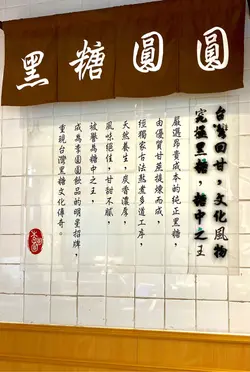 黑糖圓圓
台灣回甘，文化風物
究極黑糖，糖中之王
嚴選昂貴成本的純正黑糖，
由優質甘蔗提煉而成，
經獨家古法熬煮多道工序，
天然養生，炭香濃厚，
風味絕佳，甘甜不膩，
被譽為糖中之王，
成為李圓圓飲品的明星招牌，
重現台灣黑糖文化傳奇。